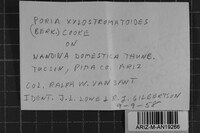 PORIA XYLOSTROMATOIDES
(BERK) COOKE
ON
NANDINA DOMESTICA THUNB.
TUCSON, PIMA CO. ARIZ
COL. RALPH W. VAN SANT
IDENT. J.L. LOWE & R.L. GILBERTSON
9-9-58
ARIZ-M-AN19266